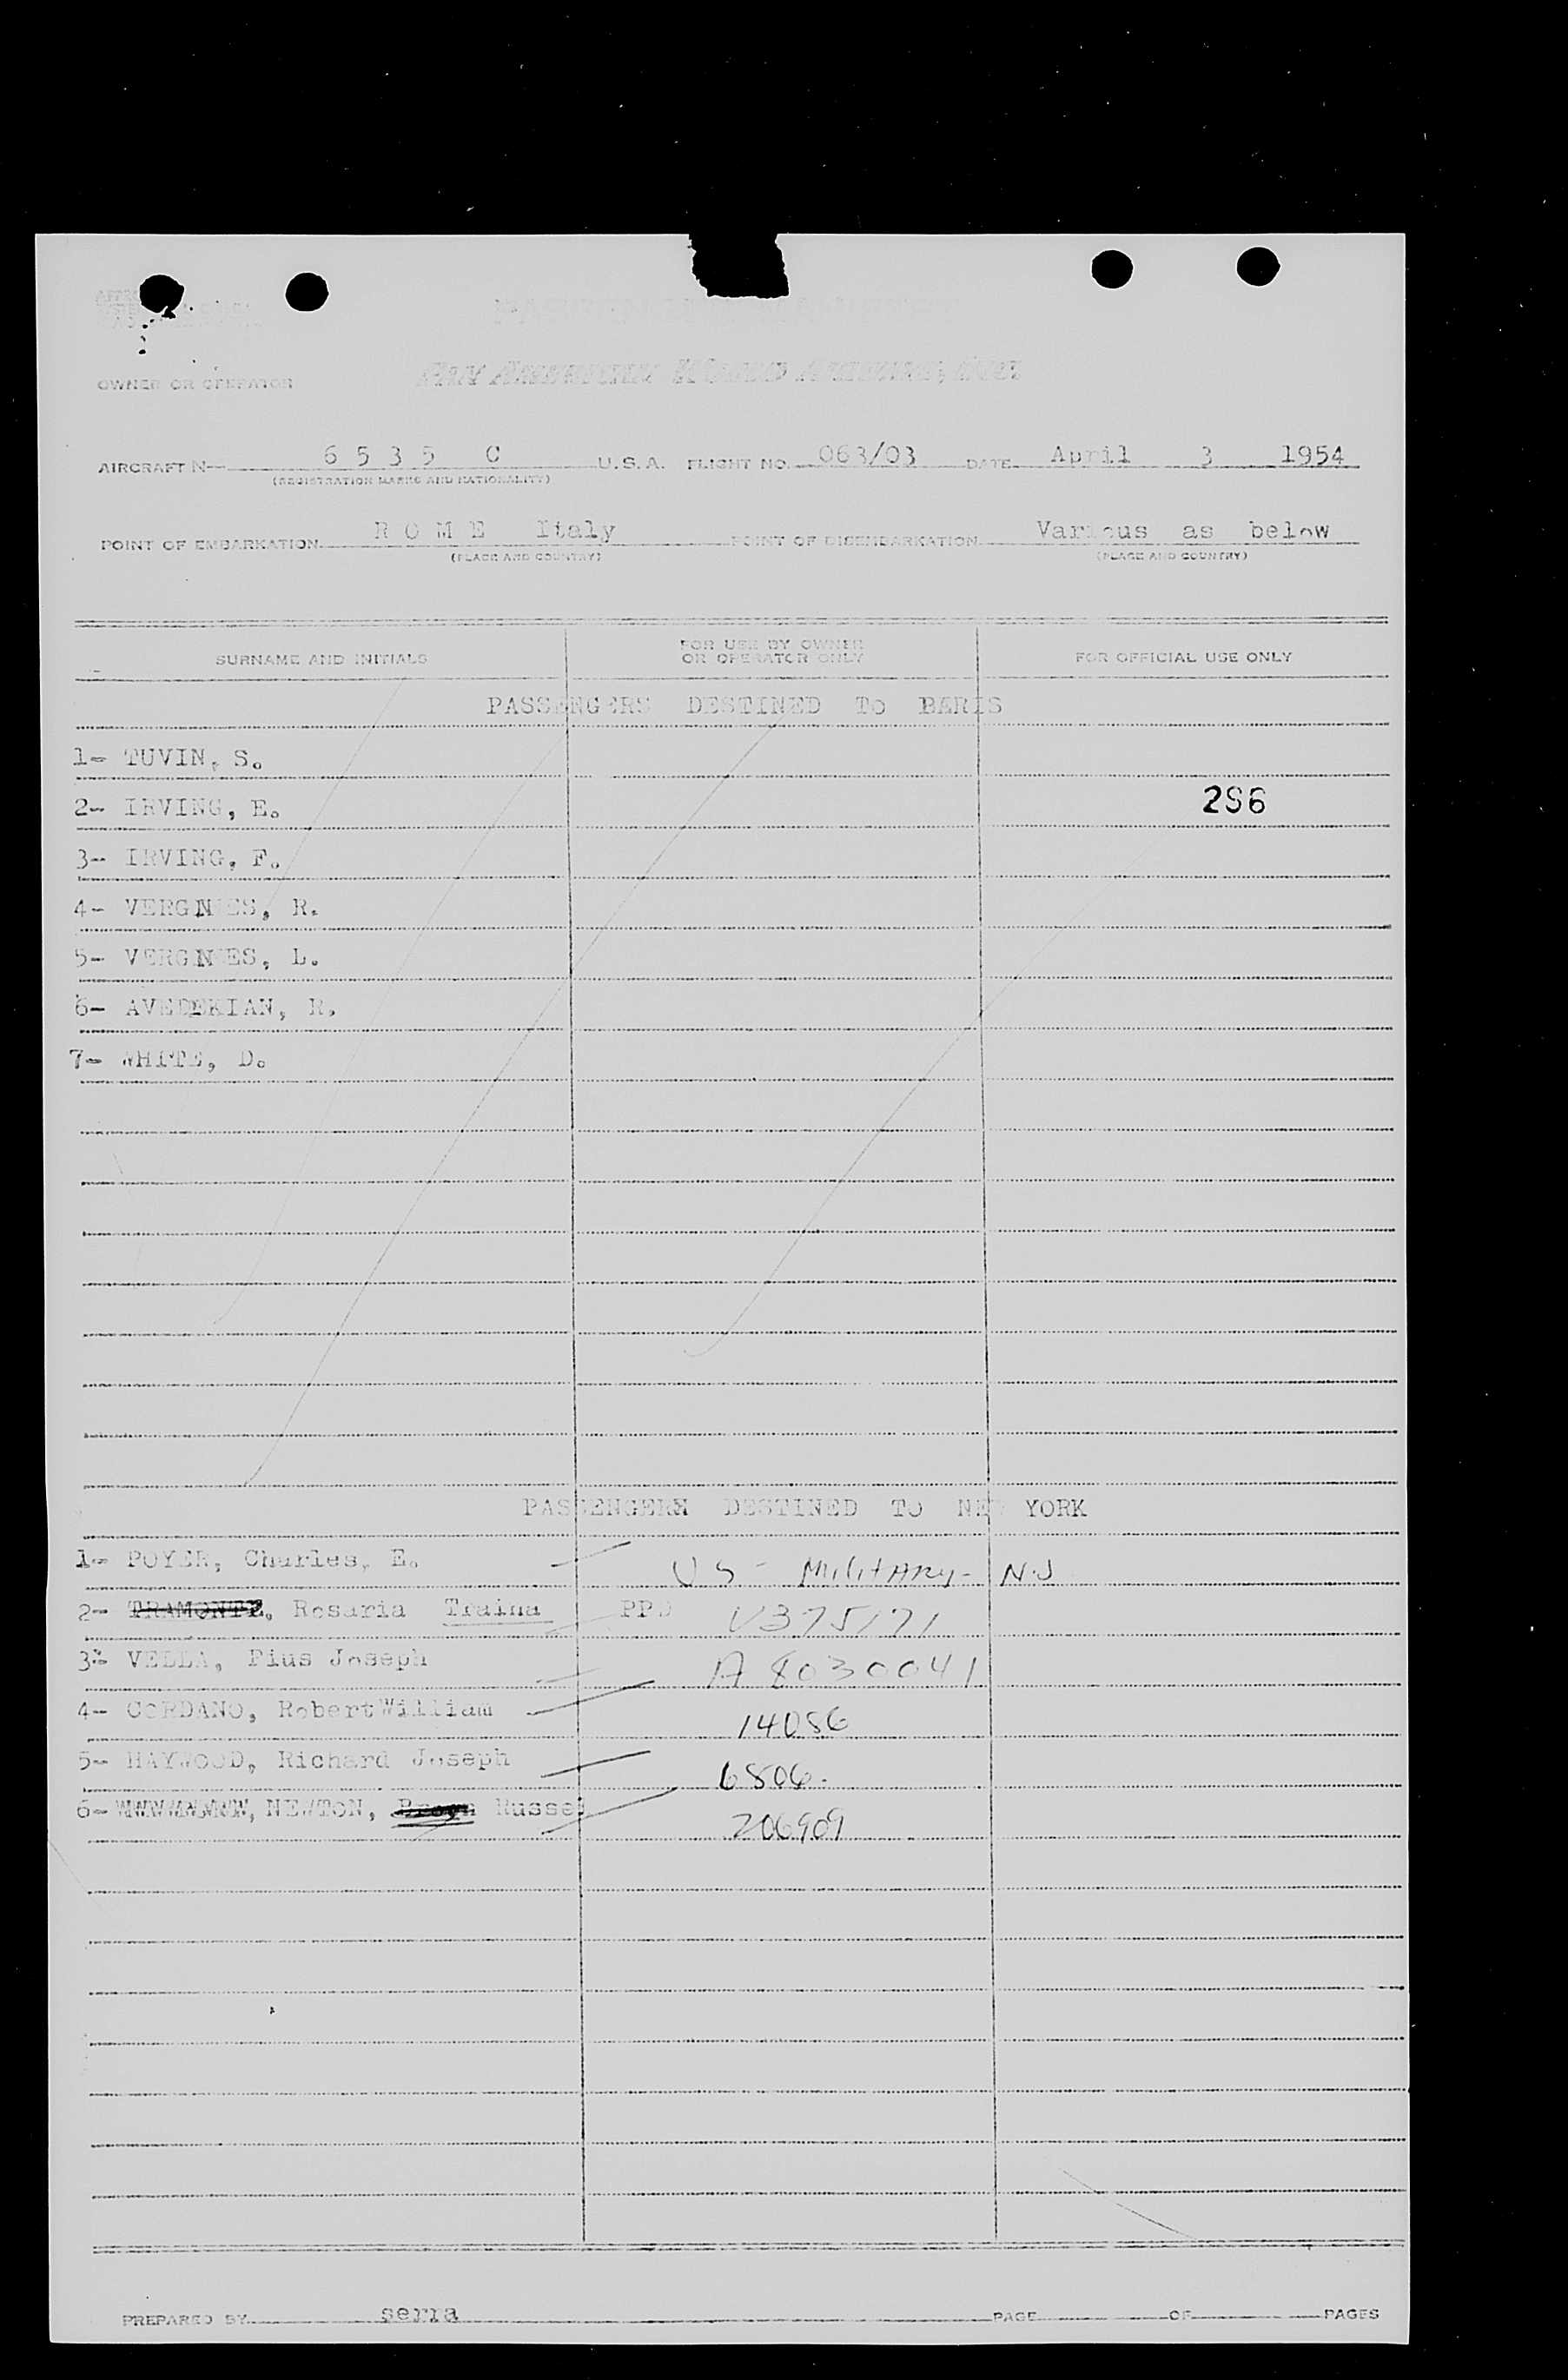 OWNER OR OPERATOR PAN AMERICAN WORLD AIRWAYS, INC.
AIRCRAFT N— 6 5 3 5 C U.S.A. FLIGHT NO. 063/03 DATE April 3 1954
(REGISTRATION MARKS AND NATIONALITY)
POINT OF EMBARKATION R O M E Italy POINT OF DISEMBARKATION Various as below
(PLACE AND COUNTRY) (PLACE AND COUNTRY)
SURNAME AND INITIALS FOR USE BY OWNER OR OPERATOR ONLY FOR OFFICIAL USE ONLY
PASSENGERS DESTINED To BARIS
1- TUVIN, S.
2- IRVING, E. 296
3- IRVING, F.
4- VERGNES, R.
5- VERGNES, L.
6- AVEDEKIAN, R.
7- WHITE, D.
PASSENGERS DESTINED TO NEW YORK
1- POYER, Charles, E. US - Military - N.J
2- TRAMONTE, Rosaria Traina PPD V375171
3- VELLA, Pius Joseph A 8030041
4- CORDANO, Robert William 14086
5- HAYWOOD, Richard Joseph 6806.
6- NEWTON, Russel 206909
PREPARED BY serra PAGE OF PAGES